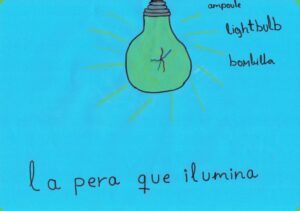 ampoule
lightbulb
bombilla
la pera que ilumina